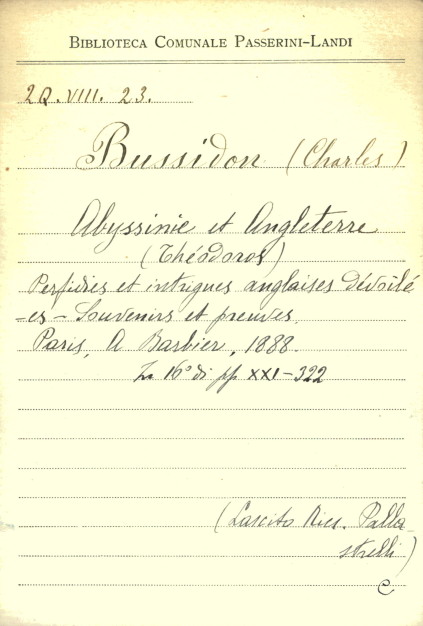 BIBLIOTECA COMUNALE PASSERINI-LANDI
2Q.VIII. 23.
Bussidon (Charles)
Abyssinie et Angleterre
(Théodoros)
Perfidies et intrigues anglaises dévoilé
=es - Souvenirs et preuves.
Paris, A Barbier, 1888.
In 16° di pp XXI-322
(Lascito Ricc. Palla
strelli)
C